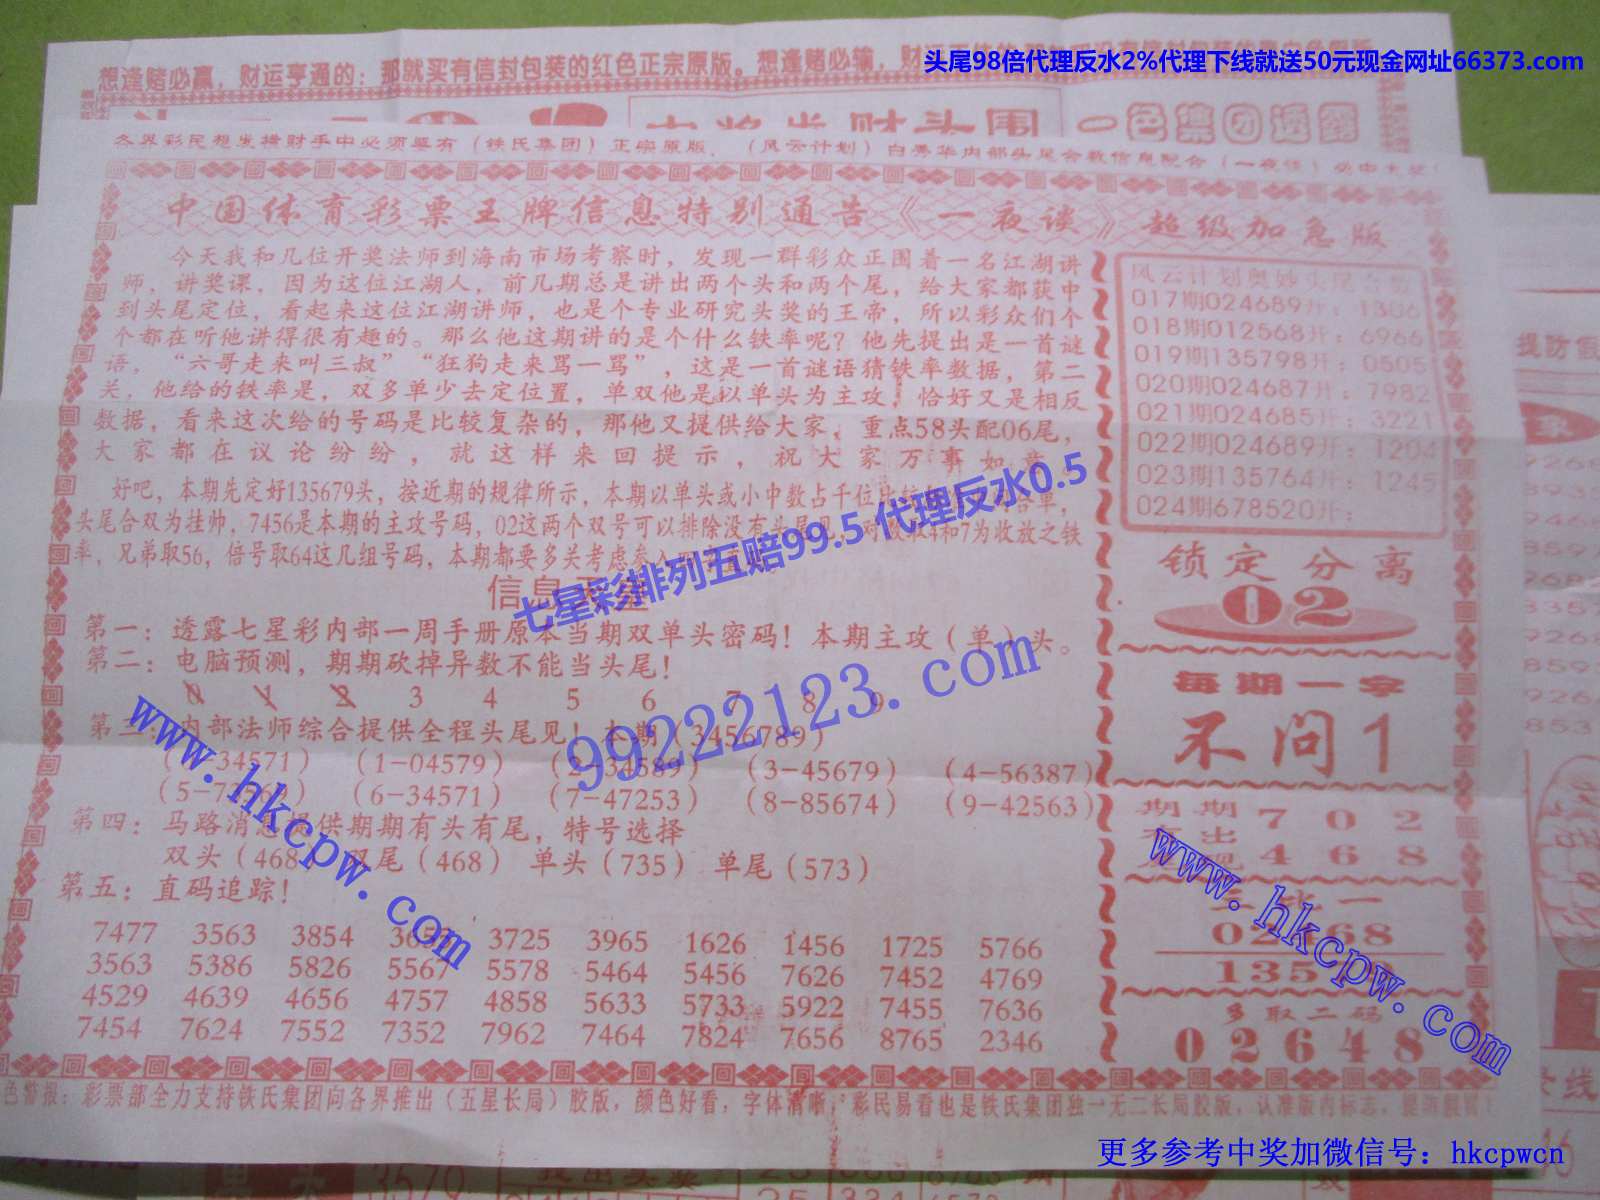 头尾98倍代理反水2%代理下线就送50元现金网址66373.com
想逢赌必赢，财运亨通的：那就买有信封包装的红色正宗原版。想逢赌必输，财运
中奖发财头围
一色集团透露
各界彩民想发横财手中必须要有（铁氏集团）正宗原版．（风云计划）白秀华内部头尾合数信息配合（一夜谈）必中大奖
中国体育彩票王牌信息特别通告《一夜谈》超级加急版
今天我和几位开奖法师到海南市场考察时，发现一群彩众正围着一名江湖讲
师，讲奖课，因为这位江湖人，前几期总是讲出两个头和两个尾，给大家都获中
到头尾定位，看起来这位江湖讲师，也是个专业研究头奖的王帝，所以彩众们个
个都在听他讲得很有趣的。那么他这期讲的是个什么铁率呢？他先提出是一首谜
语，“六哥走来叫三叔”“狂狗走来骂一骂”，这是一首谜语猜铁率数据，第二
关，他给的铁率是，双多单少去定位置，单双他是以单头为主攻，恰好又是相反
数据，看来这次给的号码是比较复杂的，那他又提供给大家，重点58头配06尾，
大家都在议论纷纷，就这样来回提示，祝大家万事如意
好吧，本期先定好135679头，按近期的规律所示，本期以单头或小中数占千位
头尾合双为挂帅，7456是本期的主攻号码，02这两个双号可以排除没有头尾见，对数取4和7为收放之铁
率，兄弟取56，倍号取64这几组号码，本期都要多关考虑参入
信息
第一：透露七星彩内部一周手册原本当期双单头密码！本期主攻（单）头。
第二：电脑预测，期期砍掉异数不能当头尾！
0 1 2 3 4 5 6 7 8 9
第三：内部法师综合提供全程头尾见！本期（3456789）
34571）（1-04579）（2-34589）（3-45679）（4-56387）
（5-7 （6-34571）（7-47253）（8-85674）（9-42563）
第四：马路消息提供期期有头有尾，特号选择
双头（468）双尾（468）单头（735）单尾（573）
第五：直码追踪！
7477 3563 3854 3725 3965 1626 1456 1725 5766
3563 5386 5826 5567 5578 5464 5456 7626 7452 4769
4529 4639 4656 4757 4858 5633 5733 5922 7455 7636
7454 7624 7552 7352 7962 7464 7824 7656 8765 2346
风云计划奥妙头尾合数
017期024689开：1306
018期012568开：6966
019期135798开：0505
020期024687开：7982
021期024685开：3221
022期024689开：1204
023期135764开：1245
024期678520开：
锁定分离
02
每期一字
不问1
期期 7 0 2
4 6 8
68
135
多取二码
02648
色警报：彩票部全力支持铁氏集团向各界推出（五星长局）胶版，颜色好看，字体清晰，彩民易看也是铁氏集团独一无二长局胶版，认准版内标志，提防假冒！
七星彩排列五赔99.5 代理反水0.5
99222123.com
www.hkcpw.com
www.hkcpw.com
更多参考中奖加微信号：hkcpwcn